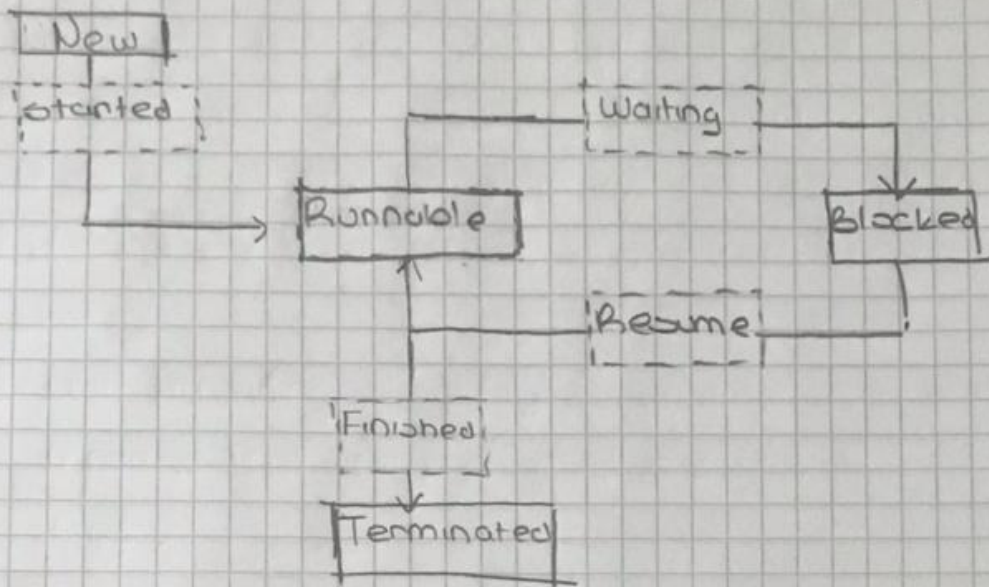 New
Started
Waiting
Runnable
Blocked
Resume
Finished
Terminated